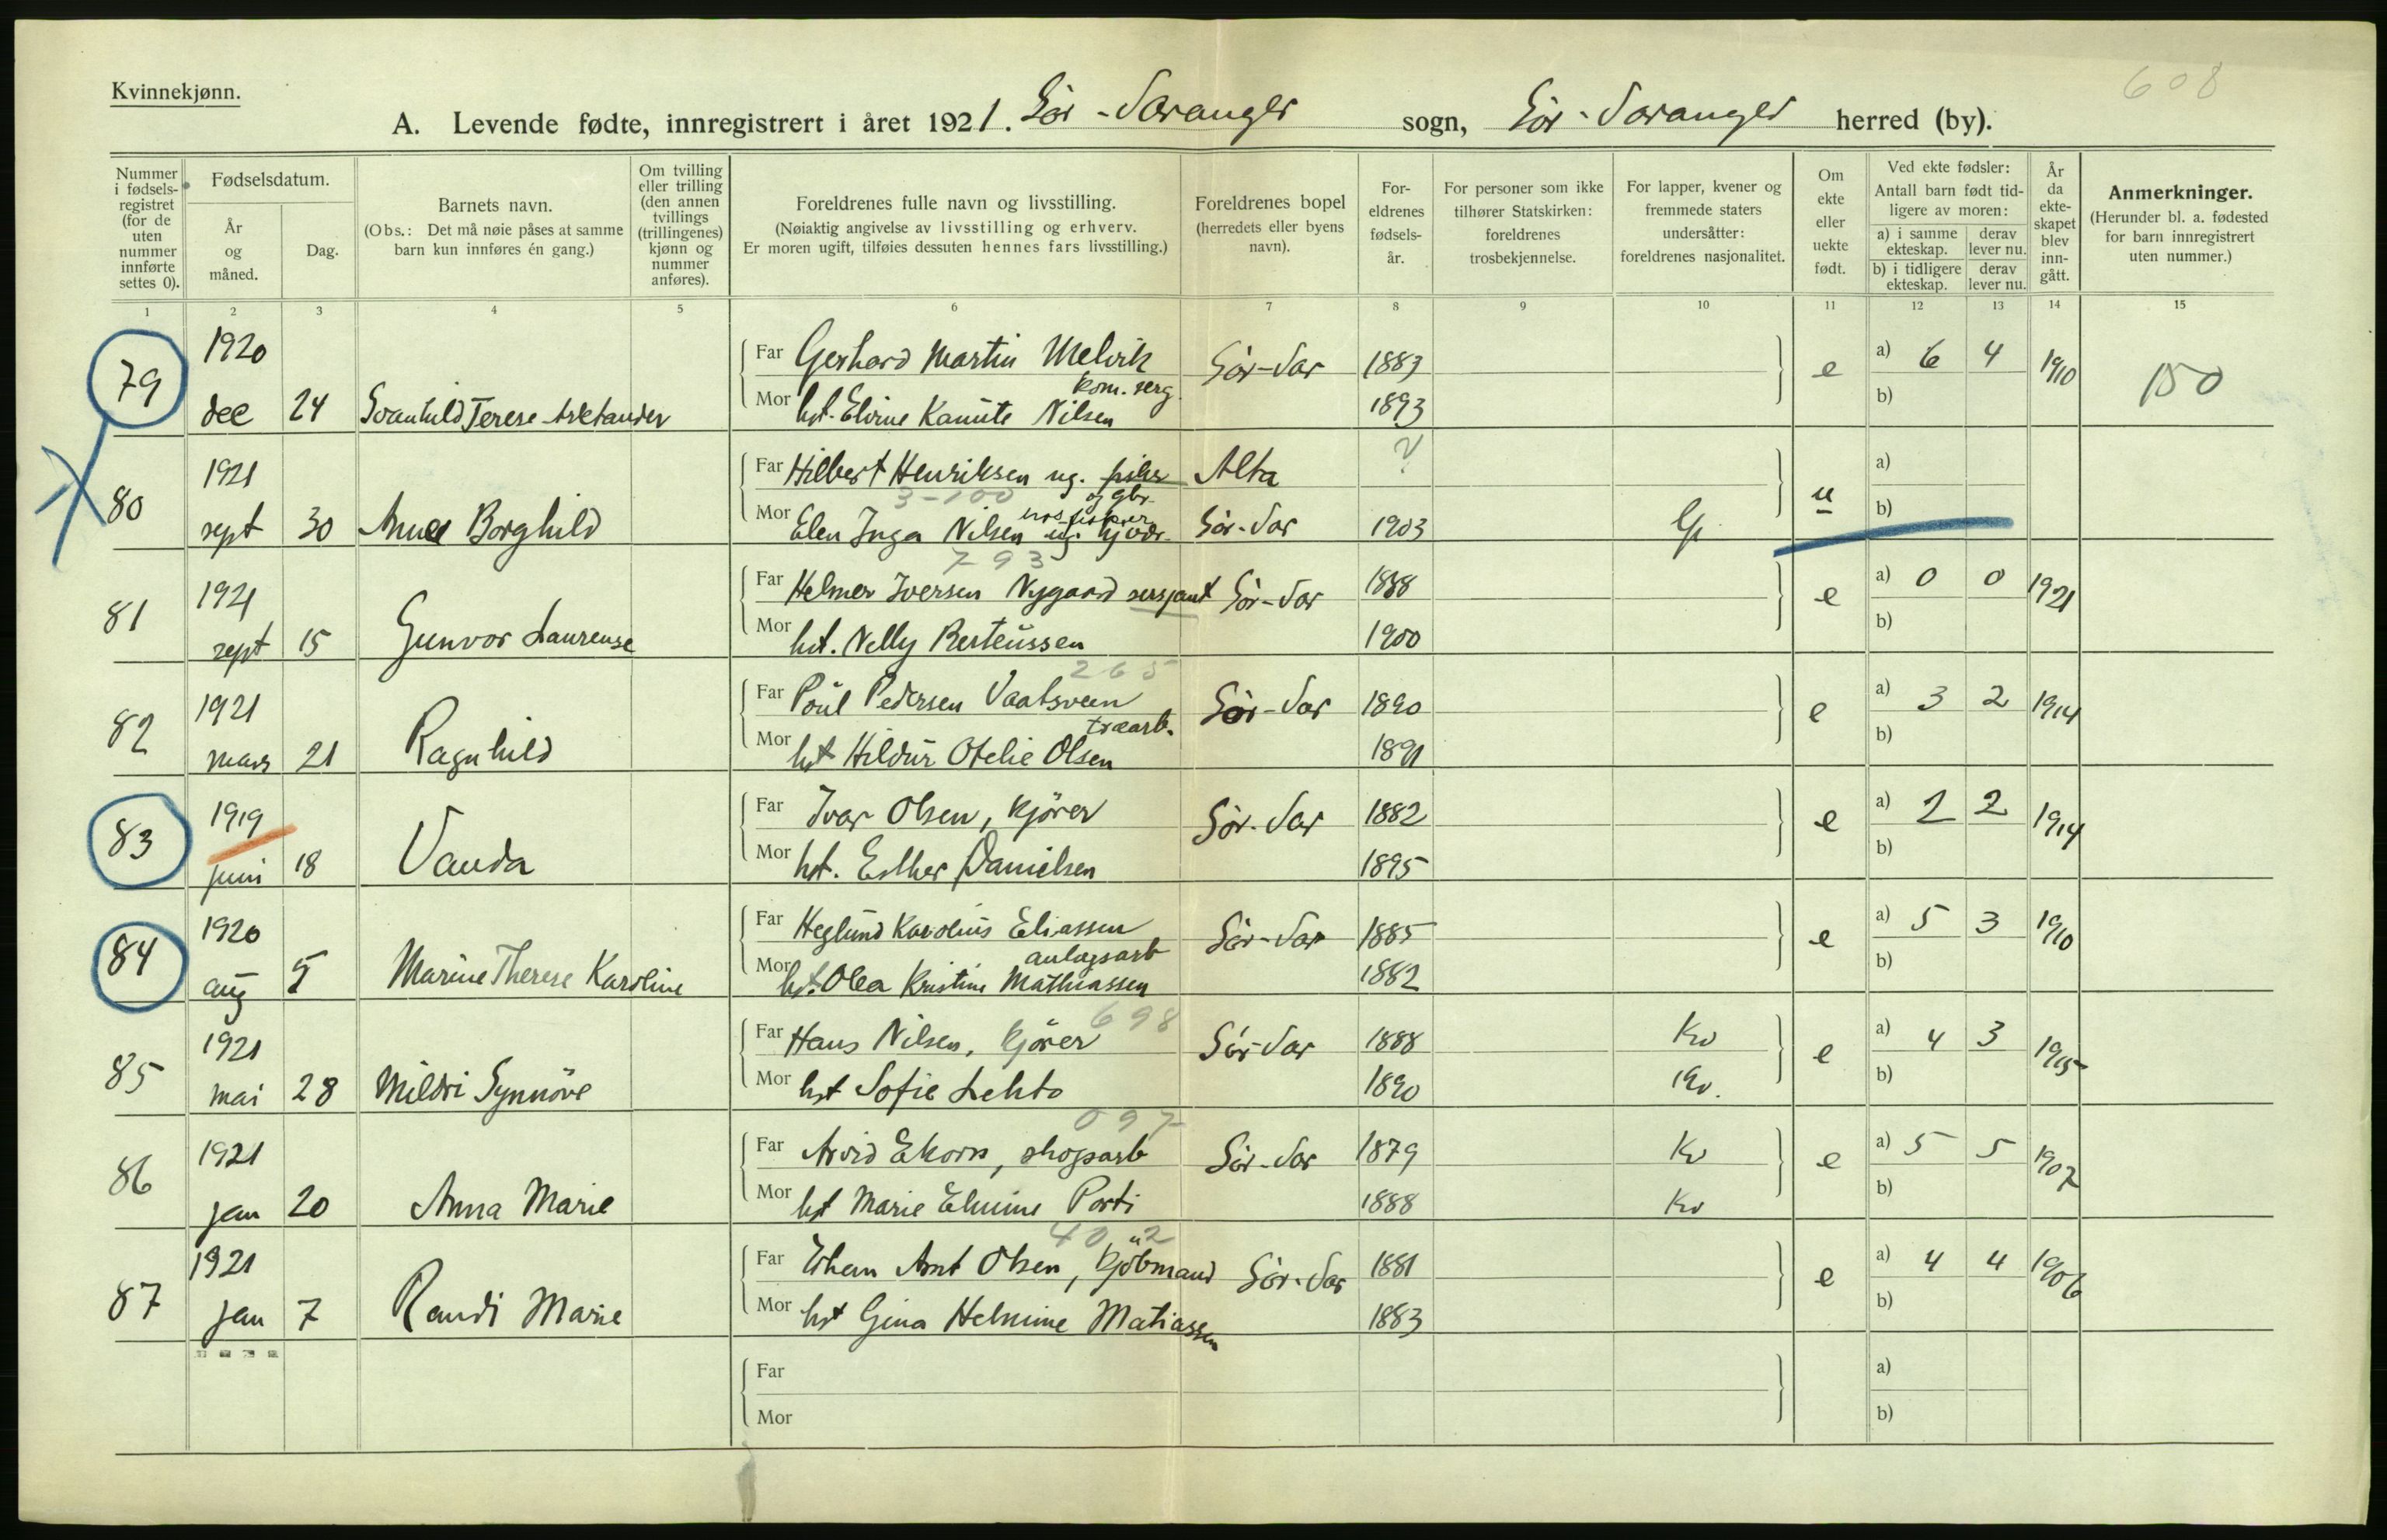 608
Kvinnekjønn.
A. Levende fødte, innregistrert i året 1921. Sør-Varanger sogn, Sør-Varanger herred (by).
Nummer i fødsels-registret (for de uten nummer innførte settes 0).
Fødselsdatum.
År og måned.
Dag.
Barnets navn.
(Obs.: Det må nøie påses at samme barn kun innføres én gang.)
Om tvilling eller trilling (den annen tvillings (trillingenes) kjønn og nummer anføres).
Foreldrenes fulle navn og livsstilling.
(Nøiaktig angivelse av livsstilling og erhverv.
Er moren ugift, tilføies dessuten hennes fars livsstilling.)
Foreldrenes bopel (herredets eller byens navn).
For-eldrenes fødsels-år.
For personer som ikke tilhører Statskirken: foreldrenes trosbekjennelse.
For lapper, kvener og fremmede staters undersåtter: foreldrenes nasjonalitet.
Om ekte eller uekte født.
Ved ekte fødsler:
Antall barn født tid-ligere av moren:
a) i samme ekteskap. derav lever nu.
b) i tidligere ekteskap. derav lever nu.
År da ekte-skapet blev inn-gått.
Anmerkninger.
(Herunder bl. a. fødested for barn innregistrert uten nummer.)
1 2 3 4 5 6 7 8 9 10 11 12 13 14 15
79 1920 dec 24 Svanhild Terese
Far Gerhard Martin Melvik kom. serg. Sør-Var 1883 e a) 6 4 1910 150
Mor hst. Elvine Kamute Nilsen 1893 b)
80 1921 sept 30 Anna Borghild
Far Hilbert Henriksen ug. fisker Alta ? u a)
3-100
og gbr.
Mor Elen Inga Nilsen ug. Sør-Var 1903 b)
793
81 1921 sept 15 Gunvor Laurense
Far Helmer Iversen Nygaard sersjant Sør-Var 1888 e a) 0 0 1921
Mor hst. Nelly Berteussen 1900 b)
265
82 1921 mars 21 Ragnhild
Far Poul Pedersen Vaatsveen træarb. Sør-Var 1890 e a) 3 2 1914
Mor hst Hildur Otelie Olsen 1891 b)
83 1919 juni 18 Vanda
Far Ivar Olsen, kjörer Sör-Var 1882 e a) 2 2 1914
Mor hst. Esther Danielsen 1895 b)
84 1920 aug 5 Marine Therese Karoline
Far Heglund Karolius Eliassen anlagsarb Sör-Var 1885 e a) 5 3 1910
Mor hst. Olea Kristine Mathiassen 1882 b)
698
85 1921 mai 28 Mildri Synnöve
Far Hans Nilsen, kjörer Sör-Var 1888 Kv e a) 4 3 1915
Mor hst Sofie Lehto 1890 Kv. b)
097
86 1921 jan 20 Anna Marie
Far Arvid Ekorn, skogsarb Sör-Var 1879 Kv e a) 5 5 1907
Mor hst Marie Elmine Porti 1888 Kv b)
402
87 1921 jan 7 Randi Marie
Far Arnt Olsen, kjöbmand Sör-Var 1881 e a) 4 4 1906
Mor hst Gina Helmine Matiassen 1883 b)
Far a)
Mor b)